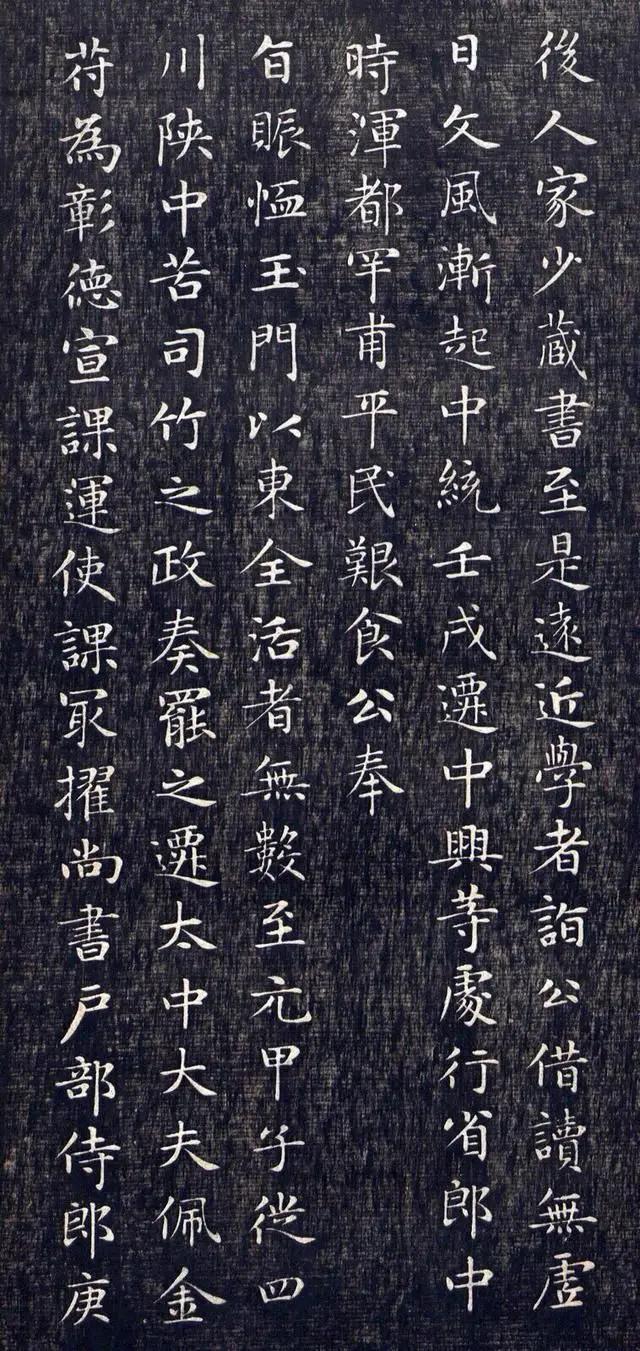 後人家少蔵書至是遠近學者詣公借讀無虗
日文風漸起中統壬戌遷中興等處行省郎中
時渾都罕甫平民艱食公奉
旨賑恤玉門以東全活者無數至元甲子從四
川陝中苦司竹之政奏罷之遷太中大夫佩金
苻為彰德宣課運使課冣擢尚書戶部侍郎庚